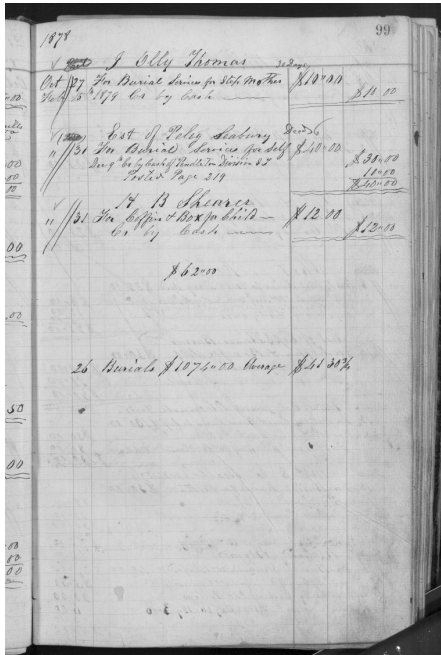 99
1878
J Olly Thomas 30 Days
Oct 27 For Burial Services for Step Mother $10"00
Feb 15th 1879 Cr by Cash $10 00
Est of Peleg Seabury
" 31 For Burial Services for Self $40"00
Dec 9th Cr by Cash of Pendleton Division S T $30"00
10"00
Posted Page 219 $40"00
H B Shearer
" 31 For Coffin & Box for Child $12 00
Cr by Cash $12"00
$62"00
26 Burials $1074"00 Average $41 30¾